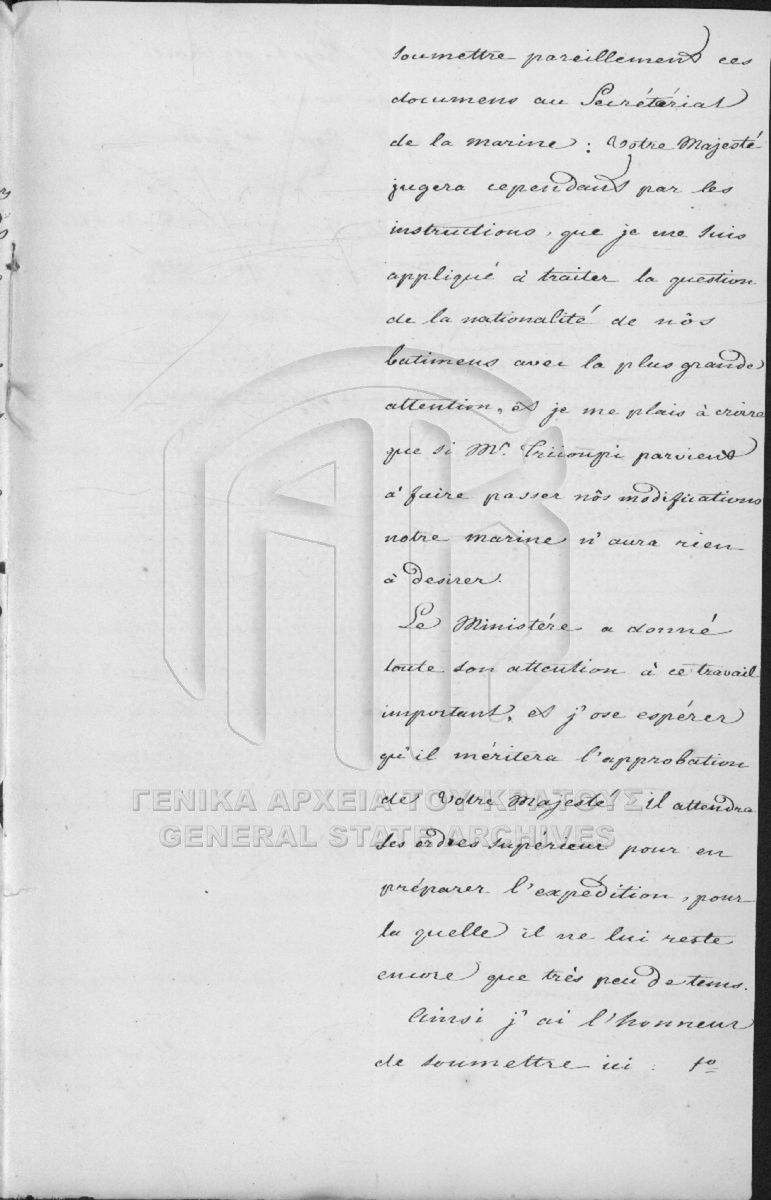 soumettre pareillement ces
documens au Secrétériat
de la marine : Votre Majesté
jugera cependant par les
instructions, que je me suis
appliqué à traiter la question
de la nationalité de nôs
batimens avec la plus grande
attention, et je me plais à croire
que si Mr. Triioupi parvient
à faire passer nôs modifications
notre marine n'aura rien
à desirer.
Le Ministére a donné
toute son attention à ce travail
important, et j'ose espérer
qu'il méritera l'approbation
de Votre Majesté il attendra
Ses ordres supérieur pour en
préparer l'expédition, pour
la quelle il ne lui reste
encore que très peu de tems.
Ainsi j'ai l'honneur
de soumettre ici : 1o
ΓΕΝΙΚΑ ΑΡΧΕΙΑ ΤΟΥ ΚΡΑΤΟΥΣ
GENERAL STATE ARCHIVES